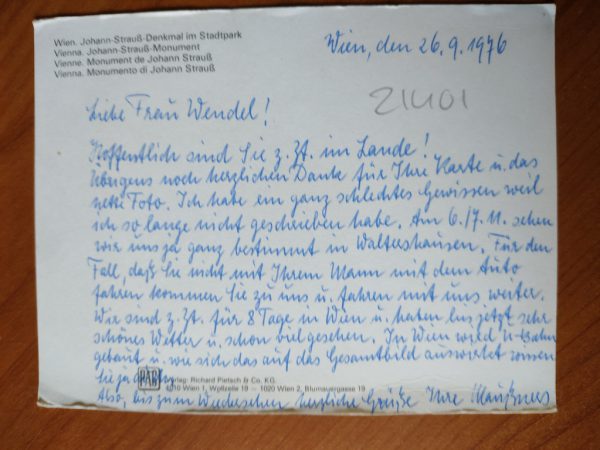 Wien. Johann-Strauß-Denkmal im Stadtpark
Vienna. Johann-Strauss-Monument
Vienne. Monument de Johann Strauß
Vienna. Monumento di Johann Strauß
Wien, den 26.9.1976
21401
Liebe Frau Wendel!
Hoffentlich sind Sie z. Zt. im Lande!
Übrigens noch herzlichen Dank für Ihre Karte u. das
nette Foto. Ich habe ein ganz schlechtes Gewissen weil
ich so lange nicht geschrieben habe. Am 6./7. 11. sehen
wir uns ja ganz bestimmt in Waltershausen. Für den
Fall, daß Sie nicht mit Ihrem Mann mit dem Auto
fahren kommen Sie zu uns u. fahren mit uns weiter.
Wir sind z. Zt. für 8 Tage in Wien u. haben bis jetzt sehr
schönes Wetter u. schon viel gesehen. In Wien wird U-Bahn
gebaut u. wie sich das auf das Gesamtbild auswirkt wissen
Sie ja
PAG Verlag: Richard Pietsch & Co. KG.
1010 Wien 1, Wollzeile 19 — 1020 Wien 2, Blumauergasse 19
Also, bis zum Wiedersehen herzliche Grüße Ihre